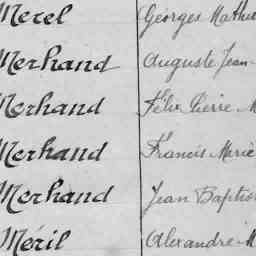 Merel Georges Mathu
Merhand Auguste Jean-
Merhand Félix Pierre M
Merhand Francis Marie
Merhand Jean Baptis
Méril Alexandre M